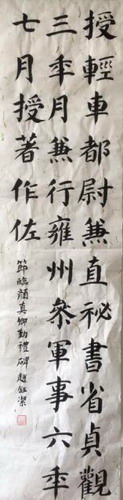 授輕車都尉兼直祕書省貞觀
三年月兼行雍州參軍事六年
七月授著作佐
節臨顏真卿勤禮碑 趙鈺潔